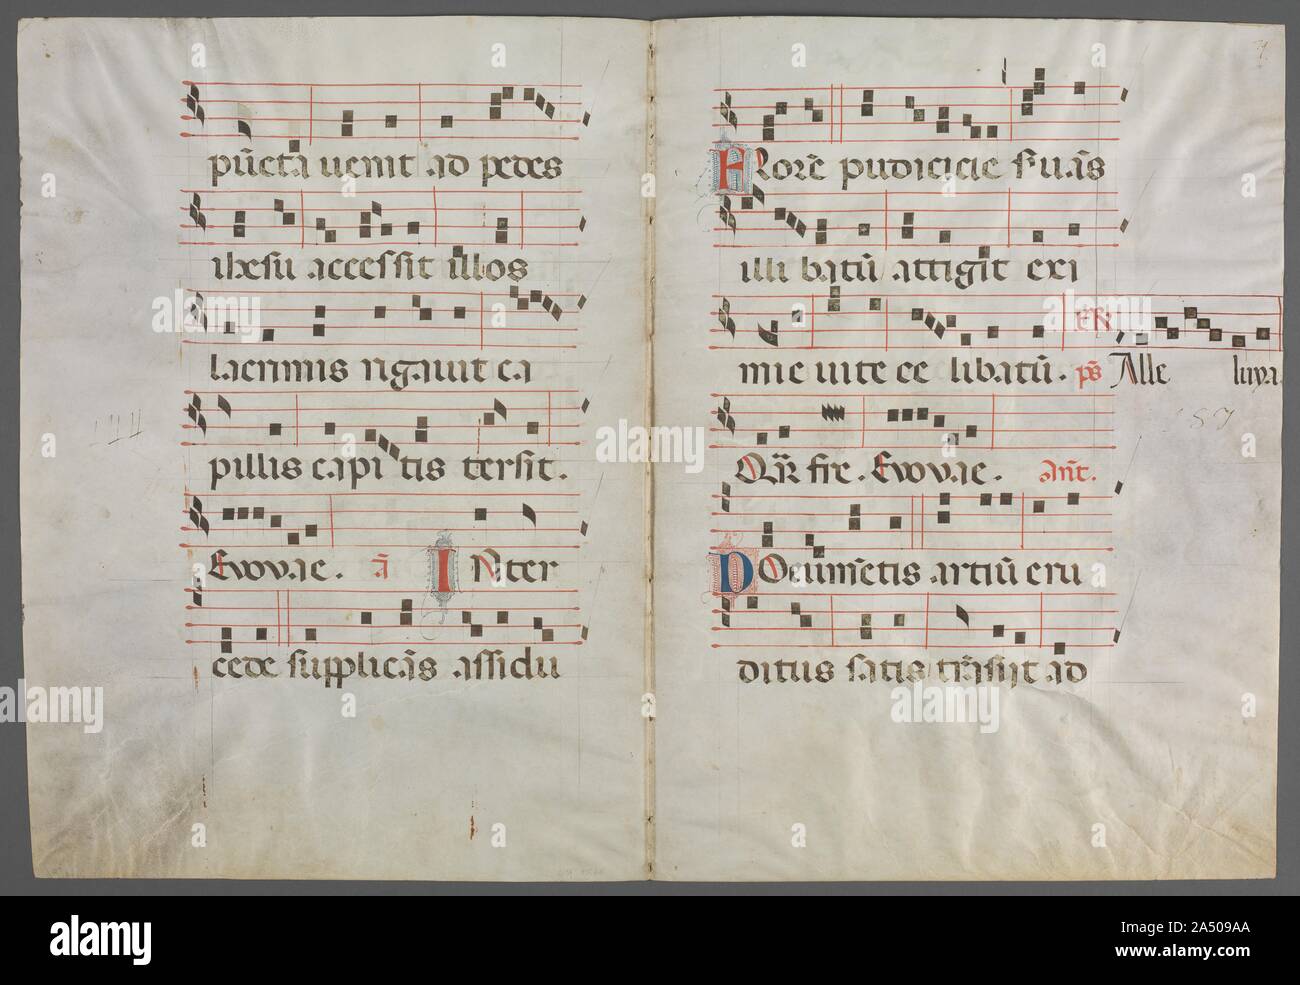 pūcta uenit ad pedes
ihesu accessit illos
lacrimis rigauit ca
pillis capitis tersit.
Evovae. ā INter
cede supplicās assidu
FLorē pudicicie seruās
illibatū attigit exi
mie uite ce libatū. ps Alle luya
Evovae. ant.
DOcumētis artiū eru
ditus satis trāsiit ad
alamy
Image ID: 2A509AA
www.alamy.com